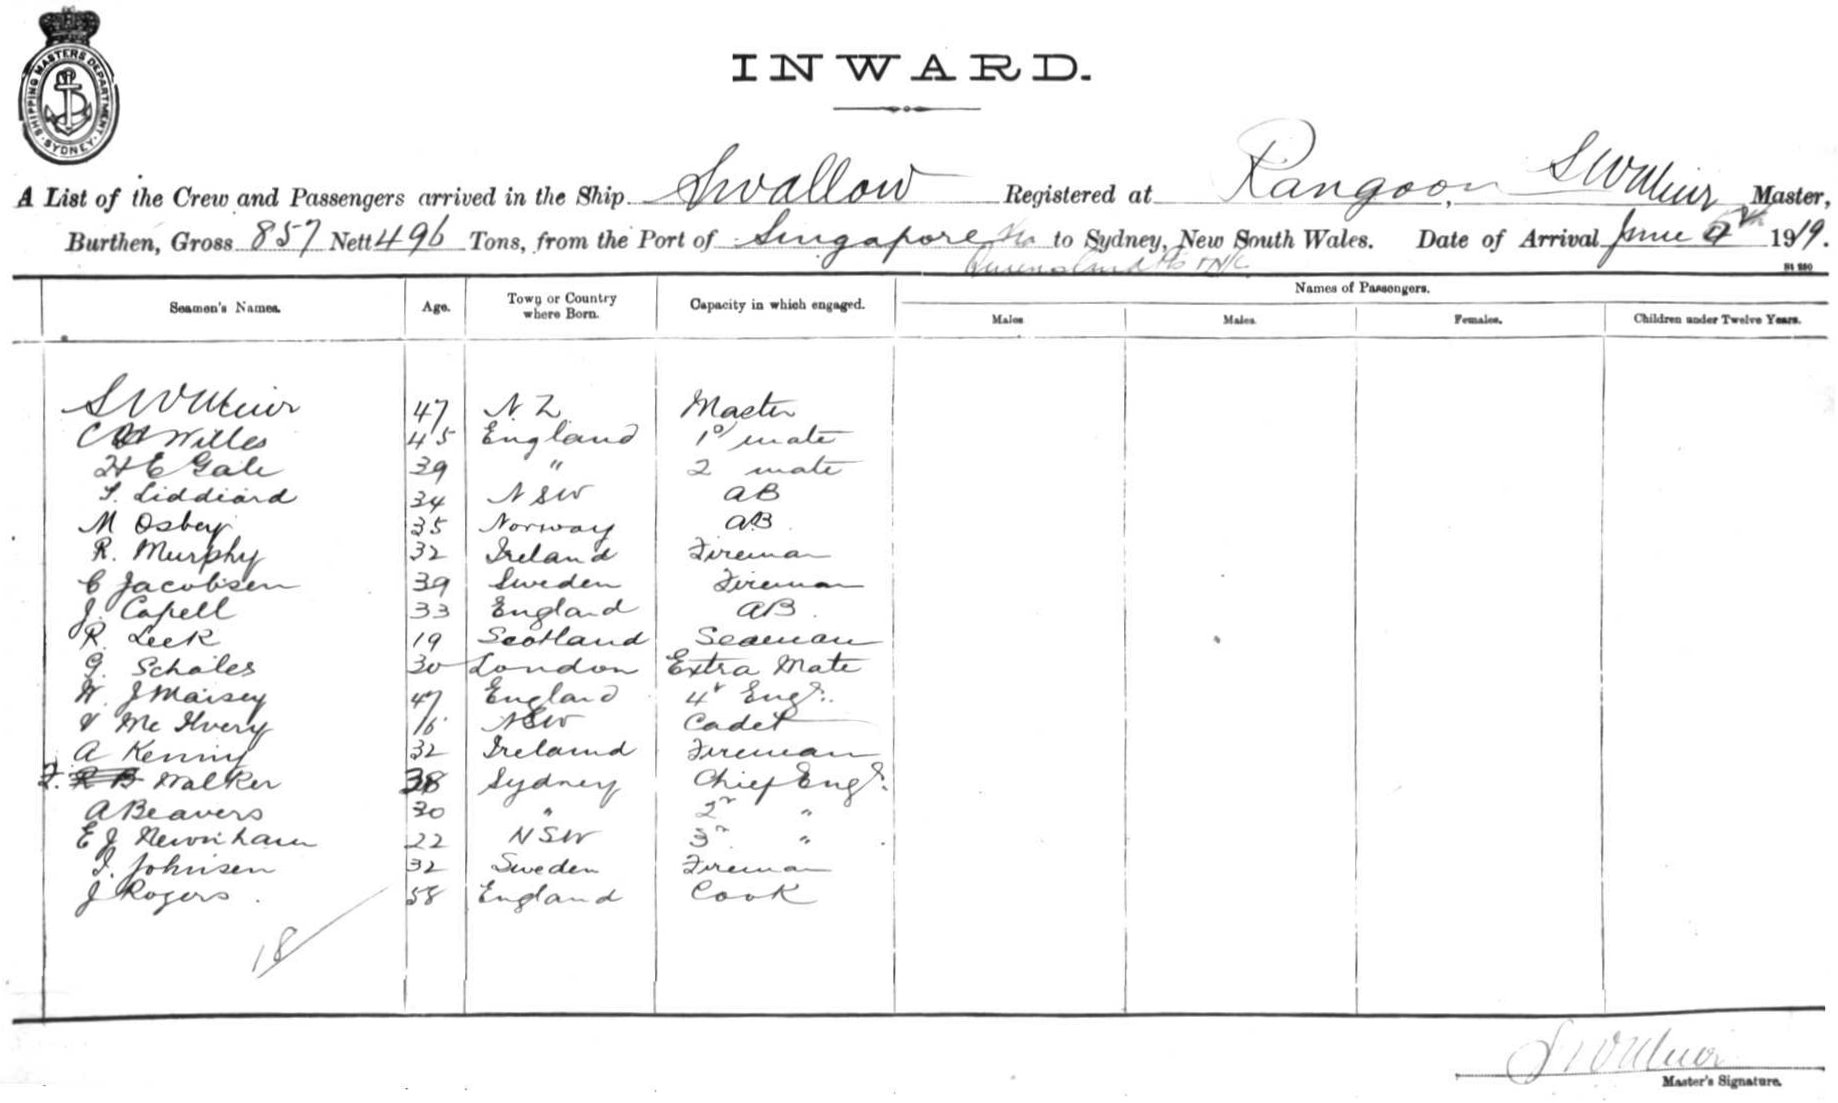 SHIPPING MASTERS DEPARTMENT SYDNEY
INWARD.
A List of the Crew and Passengers arrived in the Ship Swallow Registered at Rangoon, S W Muir Master,
Burthen, Gross 857 Nett 496 Tons, from the Port of Singapore to Sydney, New South Wales. Date of Arrival June 1919.
Queensland
Seamen's Names. Age. Town or Country where Born. Capacity in which engaged. Names of Passengers.
Males Males Females. Children under Twelve Years.
S W Muir 47 N. Z Master
Willes 45 England 1st mate
H E Gale 39 " 2 mate
Liddiard 34 N S W AB
M Osbey 35 Norway AB.
R. Murphy 32 Ireland Fireman
C Jacobsen 39 Sweden Fireman
J. Capell 33 England AB.
R. Leek 19 Scotland Seaman
G. Scholes 30 London Extra Mate
W. J Maisey 47 England 4r Engr.
V Mc Ilvery 16 NSW Cadet
A Kenny 32 Ireland Fireman
Walker 38 Sydney Chief Engr.
A Beavers 30 " 2nr "
E J Newnham 22 N S W 3r "
Johnsen 32 Sweden Fireman
J Rogers. 58 England Cook
18
S W Muir
Master's Signature.